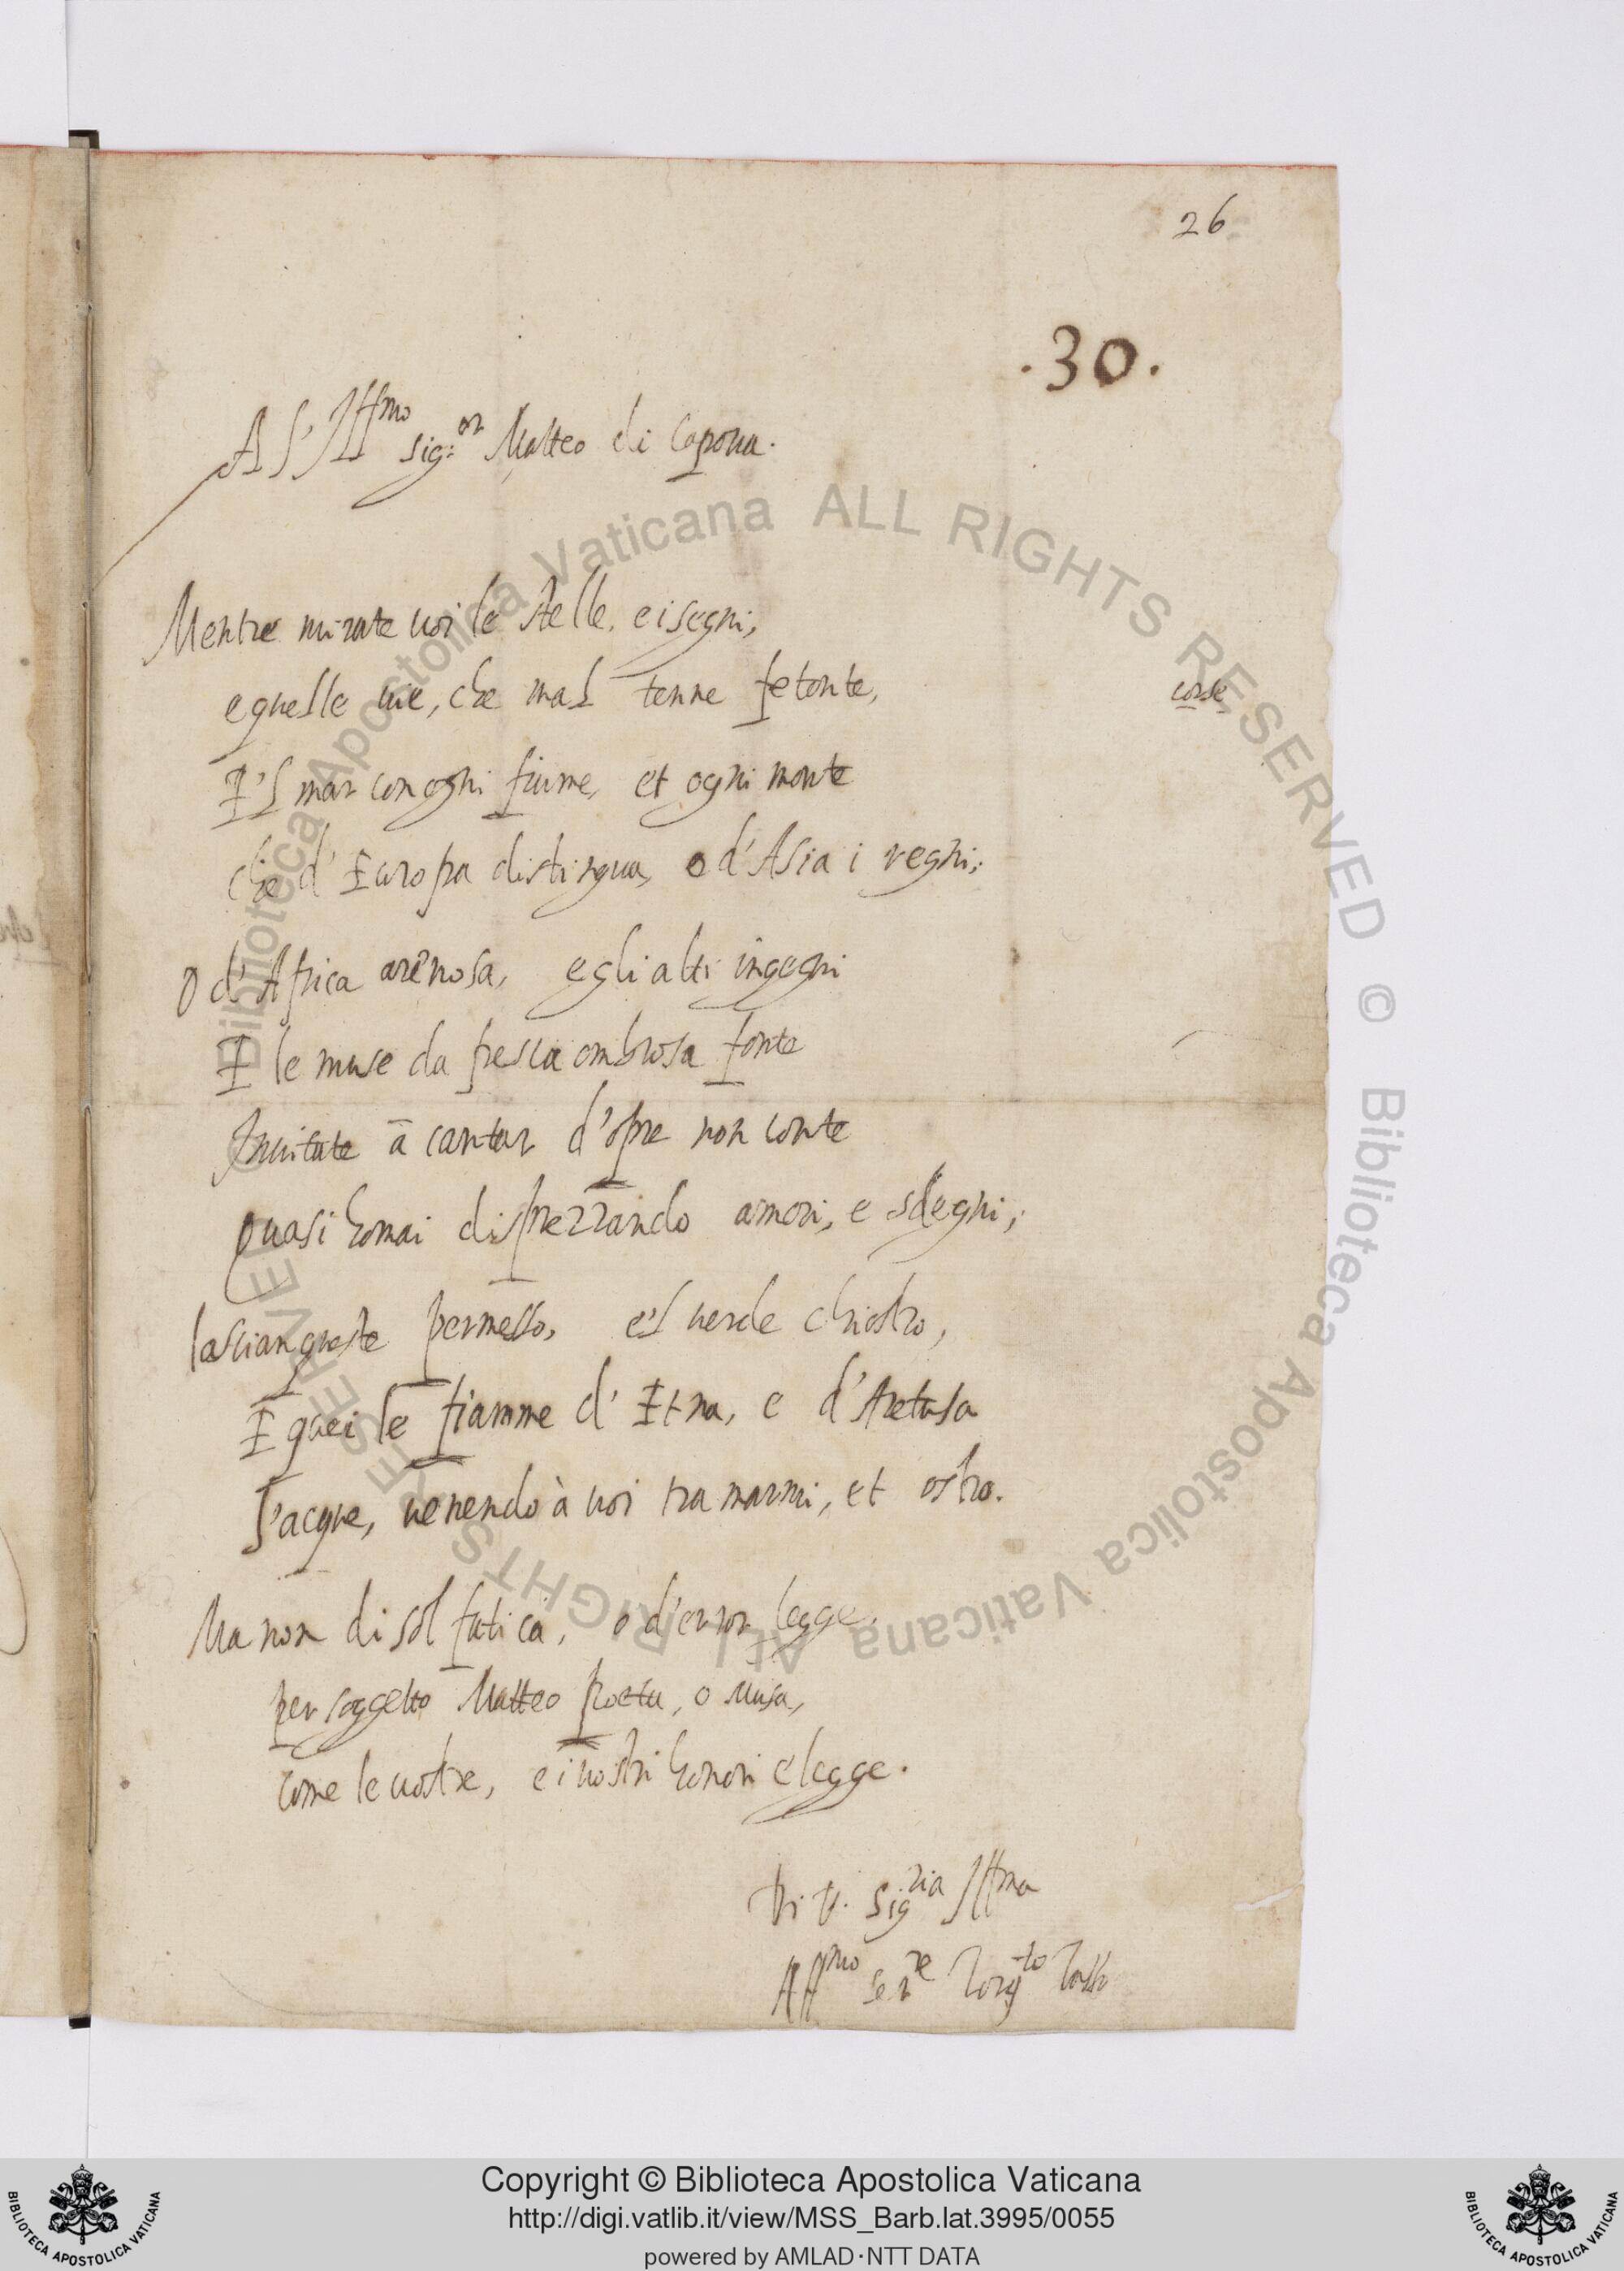 26
.30.
Al'Ill^mo sig:^or Matteo di Capoua.
Mentre mirate uoi le stelle, e i segni,
e quelle uie, che mal tenne fetonte,
corse
E'l mar con ogni fiume, et ogni monte
che d'Europa distingua, o d'Asia i regni;
O d'Africa arenosa, e gli alti ingegni
E le muse da fresca ombrosa fonte
Inuitate à cantar d'opre non conte
Quasi homai disprezzando amori, e sdegni;
lascian queste permesso, e'l uerde chiostro,
E quei le fiamme d'Etna, e d'Aretusa
l'acque, uenendo à uoi tra marmi, et ostro.
Ma non di sol fatica, o d'error legge,
per soggetto Matteo poeta, o Musa,
come le uostre, e i uostri honori elegge.
Di V. Sig^ria Ill^ma
Aff^mo ser^re Torq^to Tasso
Biblioteca Apostolica Vaticana ALL RIGHTS RESERVED ©
Biblioteca Apostolica Vaticana ALL RIGHTS RESERVED ©
BIBLIOTECA APOSTOLICA VATICANA
Copyright © Biblioteca Apostolica Vaticana
http://digi.vatlib.it/view/MSS_Barb.lat.3995/0055
powered by AMLAD·NTT DATA
BIBLIOTECA APOSTOLICA VATICANA